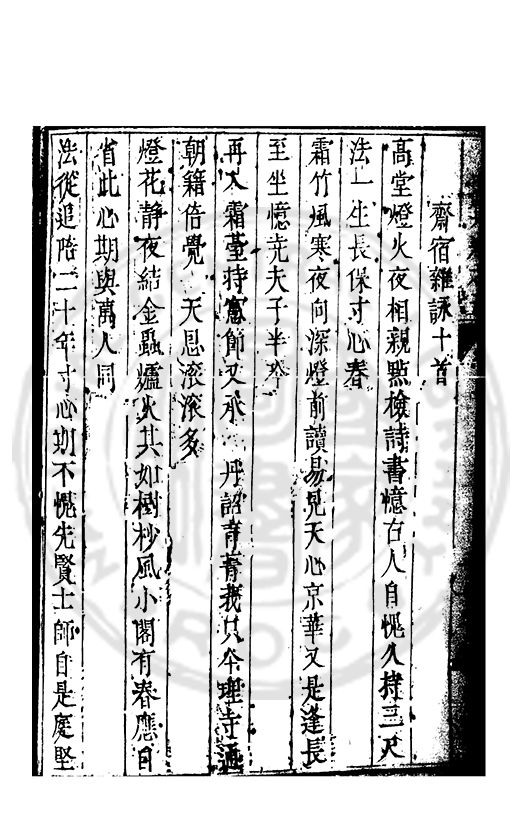 齋宿雜詠十首
高堂燈火夜相親點檢詩書憶古人自愧久持三尺
法一生長保寸心春
霜竹風寒夜向深燈前讀易見天心京華又是逢長
至坐憶先夫子半吟
再入霜臺持憲節又承 丹詔育菁莪只今理寺通
朝籍倍覺 天恩滾滾多
燈花靜夜結金蟲爐火其如樹杪風小閣有春應自
省此心期與萬人同
法從追陪二十年寸心期不愧先賢士師自是虞堅